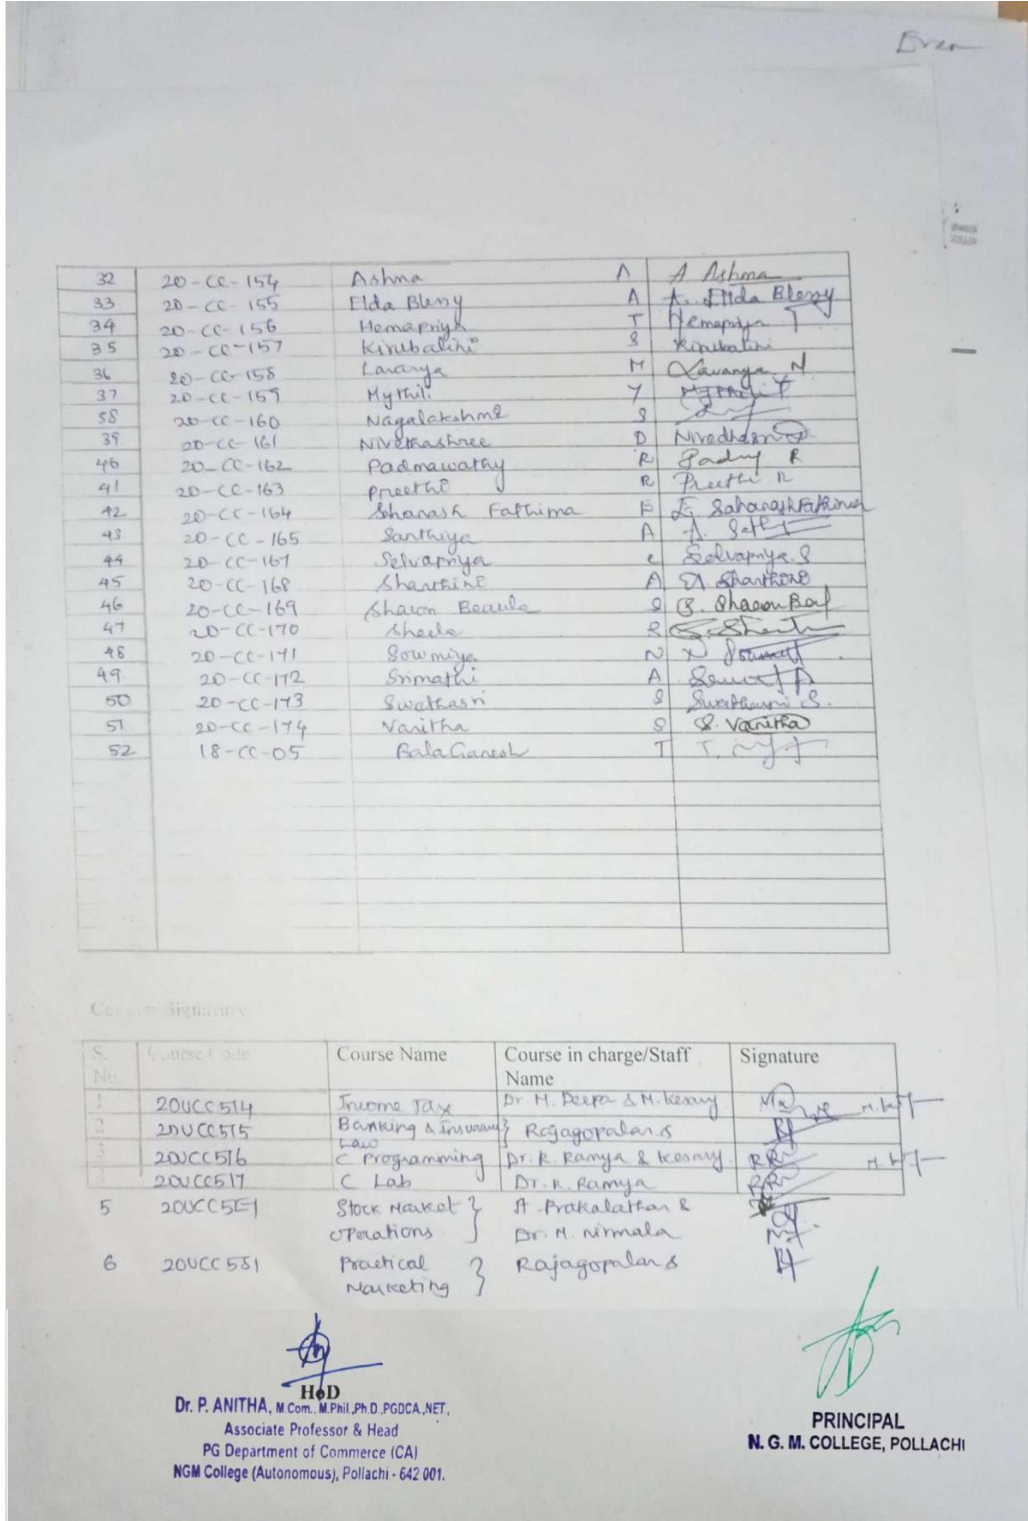 Even
32 20-CC-154 Ashma A A Ashma
33 20-CC-155 Elda Bleny A A. Elda Bleny
34 20-CC-156 Hemapriya T Hemapriya T
35 20-CC-157 Kirubalini S Kirubalini
36 20-CC-158 Lavanya M Lavanya. N
37 20-CC-159 Mythili Y
38 20-CC-160 Nagalakshmi S
39 20-CC-161 Nivethashree D
40 20-CC-162 Padmawathy R R
41 20-CC-163 Preethi R Preethi R
42 20-CC-164 Shanash Fathima F
43 20-CC-165 Santhiya A A.
44 20-CC-167 Selvapriya S Selvapriya. S
45 20-CC-168 Shanthini A
46 20-CC-169 Sharon Beaula S
47 20-CC-170 Sheela S
48 20-CC-171 Sowmiya N N
49 20-CC-172 Srimathi A
50 20-CC-173 Swethasri S
51 20-CC-174 Vanitha S S. Vanitha
52 18-CC-05 Bala Ganesh T T.
Signature
S. No Course Code Course Name Course in charge/Staff Name Signature
1 20UCC514 Income Tax Dr. M. Deepa & M. Kesavy
2 20UCC515 Banking & Insurance Law } Rajagopalan.S
3 20UCC516 C Programming Dr. R. Ramya & Kesavy. RR
20UCC517 C Lab Dr. R. Ramya RR
5 20UCC5E1 Stock Market Operations } A Prakalathan & Dr. M. Nirmala
6 20UCC5S1 Practical Marketing } Rajagopalan.S
HoD
Dr. P. ANITHA, M.Com., M.Phil.,Ph.D.,PGDCA.,NET.,
Associate Professor & Head
PG Department of Commerce (CA)
NGM College (Autonomous), Pollachi - 642 001.
PRINCIPAL
N. G. M. COLLEGE, POLLACHI